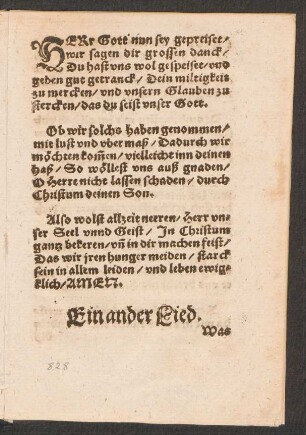 HERr Gott nun sey gepreiset/
wir sagen dir grossen danck/
Du hast vns wol gespeiset/vnd
geben gut getranck/ Dein miltigkeit
zu mercken/ vnd vnsern Glauben zu
stercken/das du seist vnser Gott.
Ob wir solchs haben genommen/
mit lust vnd vber maß/ Dadurch wir
möchten kom̃en/ vielleicht inn deinen
haß/ So wöllest vns auß gnaden/
O Herre nicht lassen schaden/ durch
Christum deinen Son.
Also wolst allzeit neeren/ Herr vn-
ser Seel vnnd Geist/ In Christum
gantz bekeren/ vñ in dir machen feist/
Das wir jren hunger meiden/ starck
sein in allem leiden/ vnd leben ewig-
klich/ AMEN.
Ein ander Lied.
Was
828